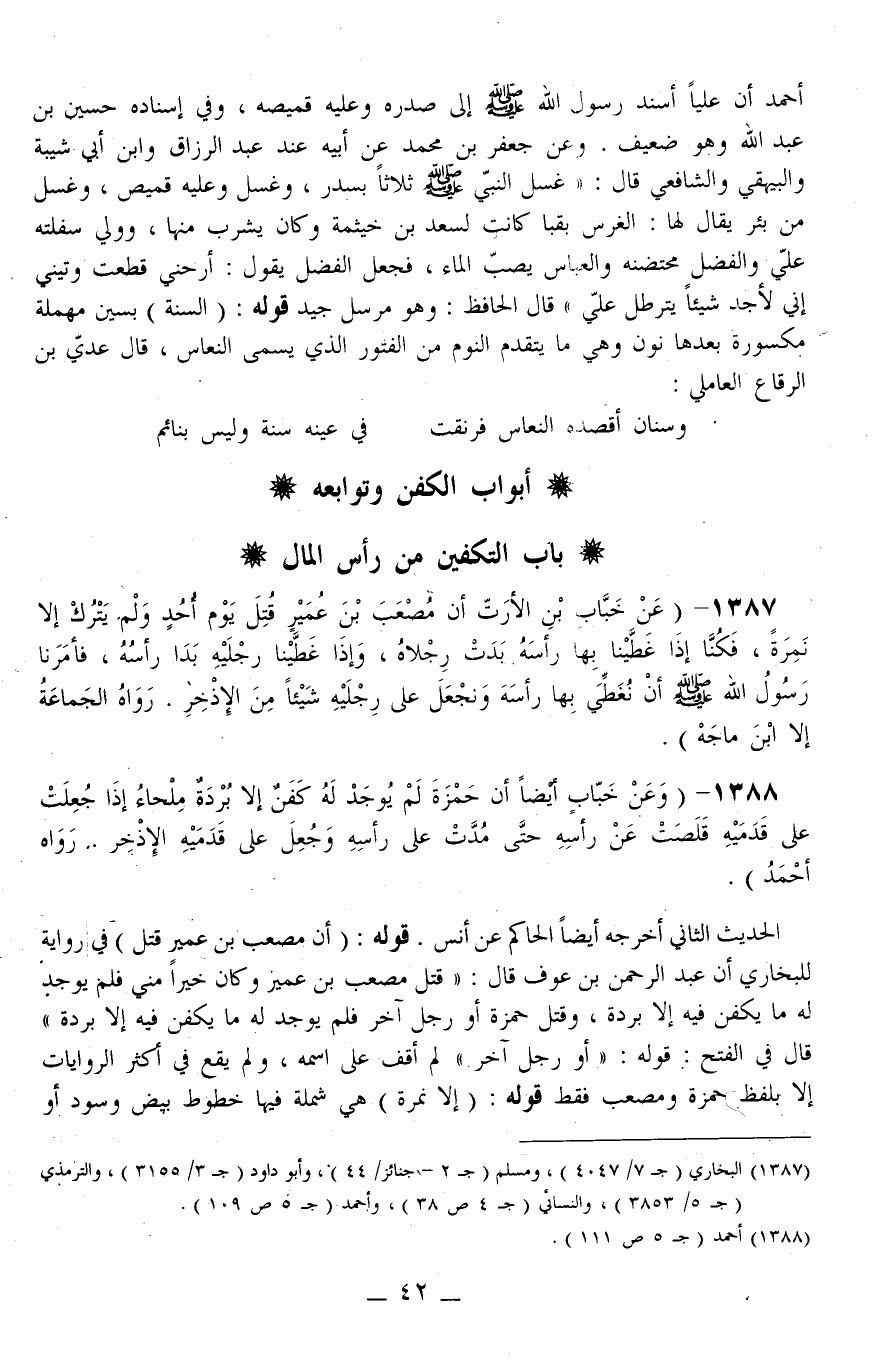 أحمد أن علياً أسند رسول الله ﷺ إلى صدره وعليه قميصه ، وفي إسناده حسين بن
عبد الله وهو ضعيف . وعن جعفر بن محمد عن أبيه عند عبد الرزاق وابن أبي شيبة
والبيهقي والشافعي قال : « غسل النبيّ ﷺ ثلاثاً بسدر ، وغسل وعليه قميص ، وغسل
من بئر يقال لها : الغرس بقبا كانت لسعد بن خيثمة وكان يشرب منها ، وولي سفلته
عليّ والفضل محتضنه والعباس يصبّ الماء ، فجعل الفضل يقول : أرحني قطعت وتيني
إني لأجد شيئاً يترطل عليّ » قال الحافظ : وهو مرسل جيد قوله : ( السنة ) بسين مهملة
مكسورة بعدها نون وهي ما يتقدم النوم من الفتور الذي يسمى النعاس ، قال عديّ بن
الرقاع العاملي :
وسنان أقصده النعاس فرنقت في عينه سنة وليس بنائم
أبواب الكفن وتوابعه
باب التكفين من رأس المال
١٣٨٧- ( عَنْ خَبَّاب بْنِ الأرَتّ أن مُصْعَبَ بْنَ عُمَيْرٍ قُتِلَ يَوْم أُحُدٍ وَلَم يَتْرُكْ إلا
نَمِرَةً ، فَكُنَّا إذَا غَطَّيْنا بِها رأسَهُ بَدَتْ رِجْلاهُ ، وَإذَا غَطَّيْنا رِجْلَيْهِ بَدَا رأسُهُ ، فأمَرَنا
رَسُولُ الله ﷺ أنْ نُغَطِّي بِها رأسَهَ وَنجْعَلَ على رِجْلَيْهِ شَيْئاً مِنَ الإذْخِرِ . رَوَاهُ الجَماعَةُ
إلا ابْنَ ماجَهْ ) .
١٣٨٨- ( وَعَنْ خَبّابٍ أيْضاً أن حَمْزَةَ لَمْ يُوجَدْ لَهُ كَفَنٌ إلا بُرْدَةٌ مِلْحاءُ إذَا جُعِلَتْ
على قَدَمَيْهِ قَلَصَتْ عَنْ رأسِهِ حتَّى مُدَّتْ على رأسِهِ وَجُعِلَ على قَدَمَيْهِ الإذْخِر .. رَوَاه
أحْمَدُ ) .
الحديث الثاني أخرجه أيضاً الحاكم عن أنس . قوله : ( أن مصعب بن عمير قتل ) في رواية
للبخاري أن عبد الرحمن بن عوف قال : « قتل مصعب بن عمير وكان خيراً مني فلم يوجد
له ما يكفن فيه إلا بردة ، وقتل حمزة أو رجل آخر فلم يوجد له ما يكفن فيه إلا بردة »
قال في الفتح : قوله : « أو رجل آخر » لم أقف على اسمه ، ولم يقع في أكثر الروايات
إلا بلفظ حمزة ومصعب فقط قوله : ( إلا نمرة ) هي شملة فيها خطوط بيض وسود أو
(١٣٨٧) البخاري ( جـ ٧/ ٤٠٤٧ ) ، ومسلم ( جـ ٢ - جنائز/ ٤٤ ) ، وأبو داود ( جـ ٣/ ٣١٥٥ ) ، والترمذي
( جـ ٥/ ٣٨٥٣ ) ، والنسائي ( جـ ٤ ص ٣٨ ) ، وأحمد ( جـ ٥ ص ١٠٩ ) .
(١٣٨٨) أحمد ( جـ ٥ ص ١١١ ) .
ــ ٤٢ ــ